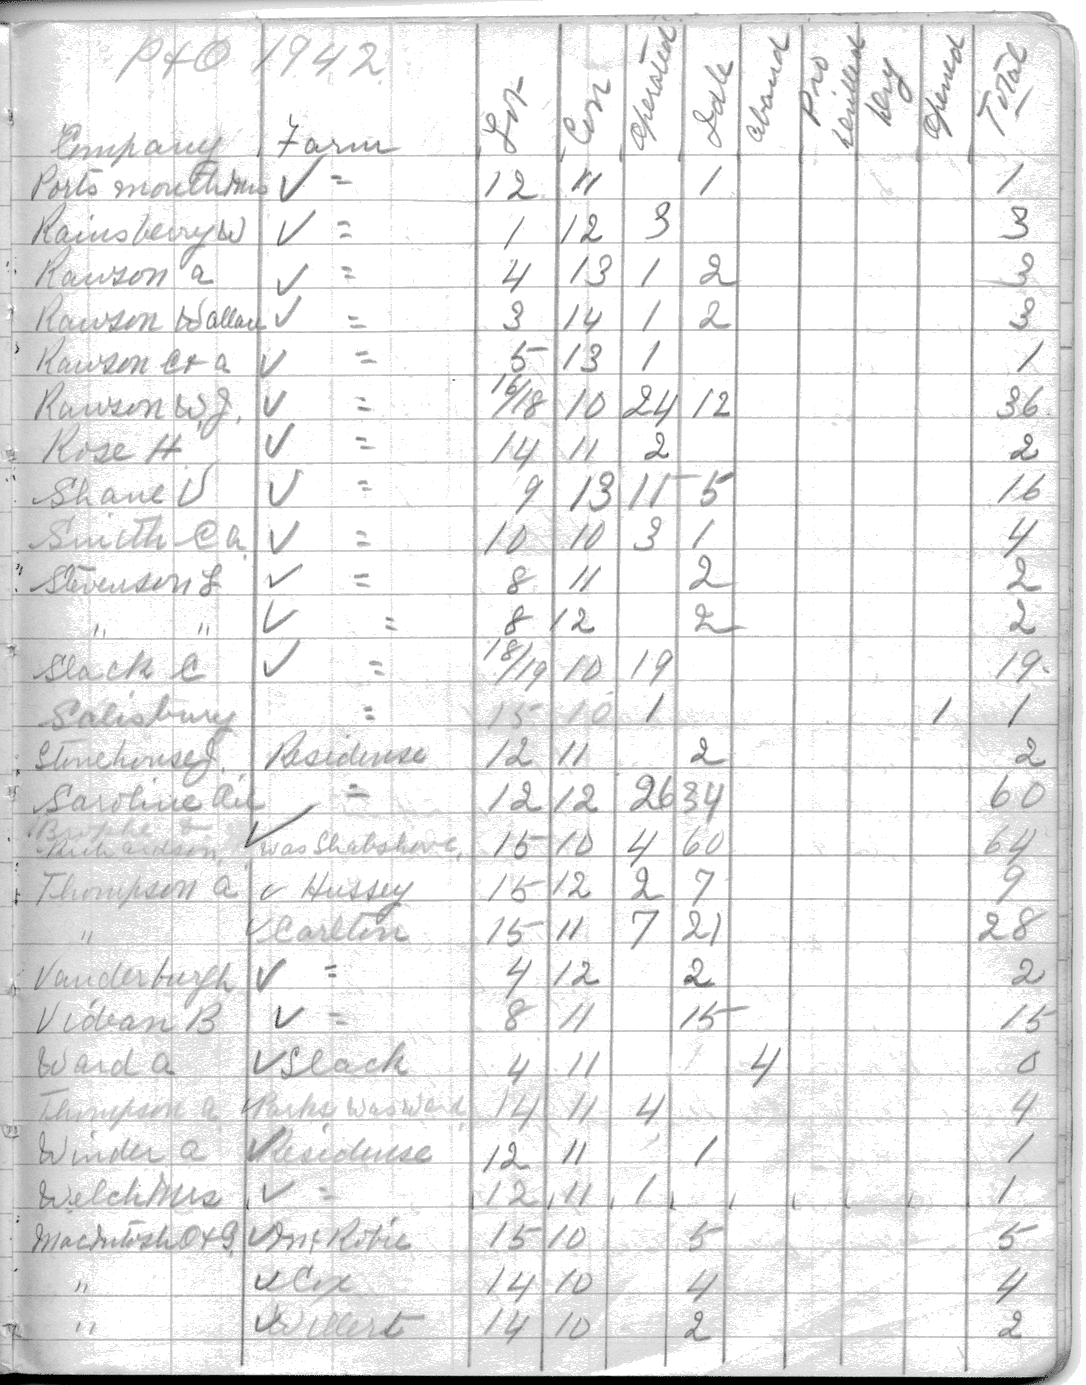 P+O 1942
Company Farm Lot Con Operated Idle aband Pro Drilled Dry Opened Total
Portsmouth Mrs ✓ = 12 11 1 1
Rainsberry W ✓ = 1 12 3 3
Rawson a ✓ = 4 13 1 2 3
Rawson Wallace ✓ = 3 14 1 2 3
Rawson C+a ✓ = 5 13 1 1
Rawson W.J. ✓ = 16/18 10 24 12 36
Rose H ✓ = 14 11 2 2
Shane V ✓ = 9 13 11 5 16
Smith C a ✓ = 10 10 3 1 4
Stevenson L ✓ = 8 11 2 2
" " ✓ = 8 12 2 2
Slack C ✓ = 18/19 10 19 19
Salisbury = 15 10 1 1 1
Stonehouse J. Residense 12 11 2 2
Saroline Oil = 12 12 26 34 60
Richardson ✓ was 15 10 4 60 64
Thompson a ✓ Hussey 15 12 2 7 9
" ✓ Carlton 15 11 7 21 28
Vanderburgh ✓ = 4 12 2 2
Videan B ✓ = 8 11 15 15
Ward a ✓ Slack 4 11 4 0
Thompson a ✓ Parks was Ward 14 11 4 4
Winder a ✓ Residense 12 11 1 1
Welch Mrs ✓ = 12 11 1 1
MacIntosh O+G ✓ 15 10 5 5
" ✓ Cox 14 10 4 4
" ✓ Willert 14 10 2 2